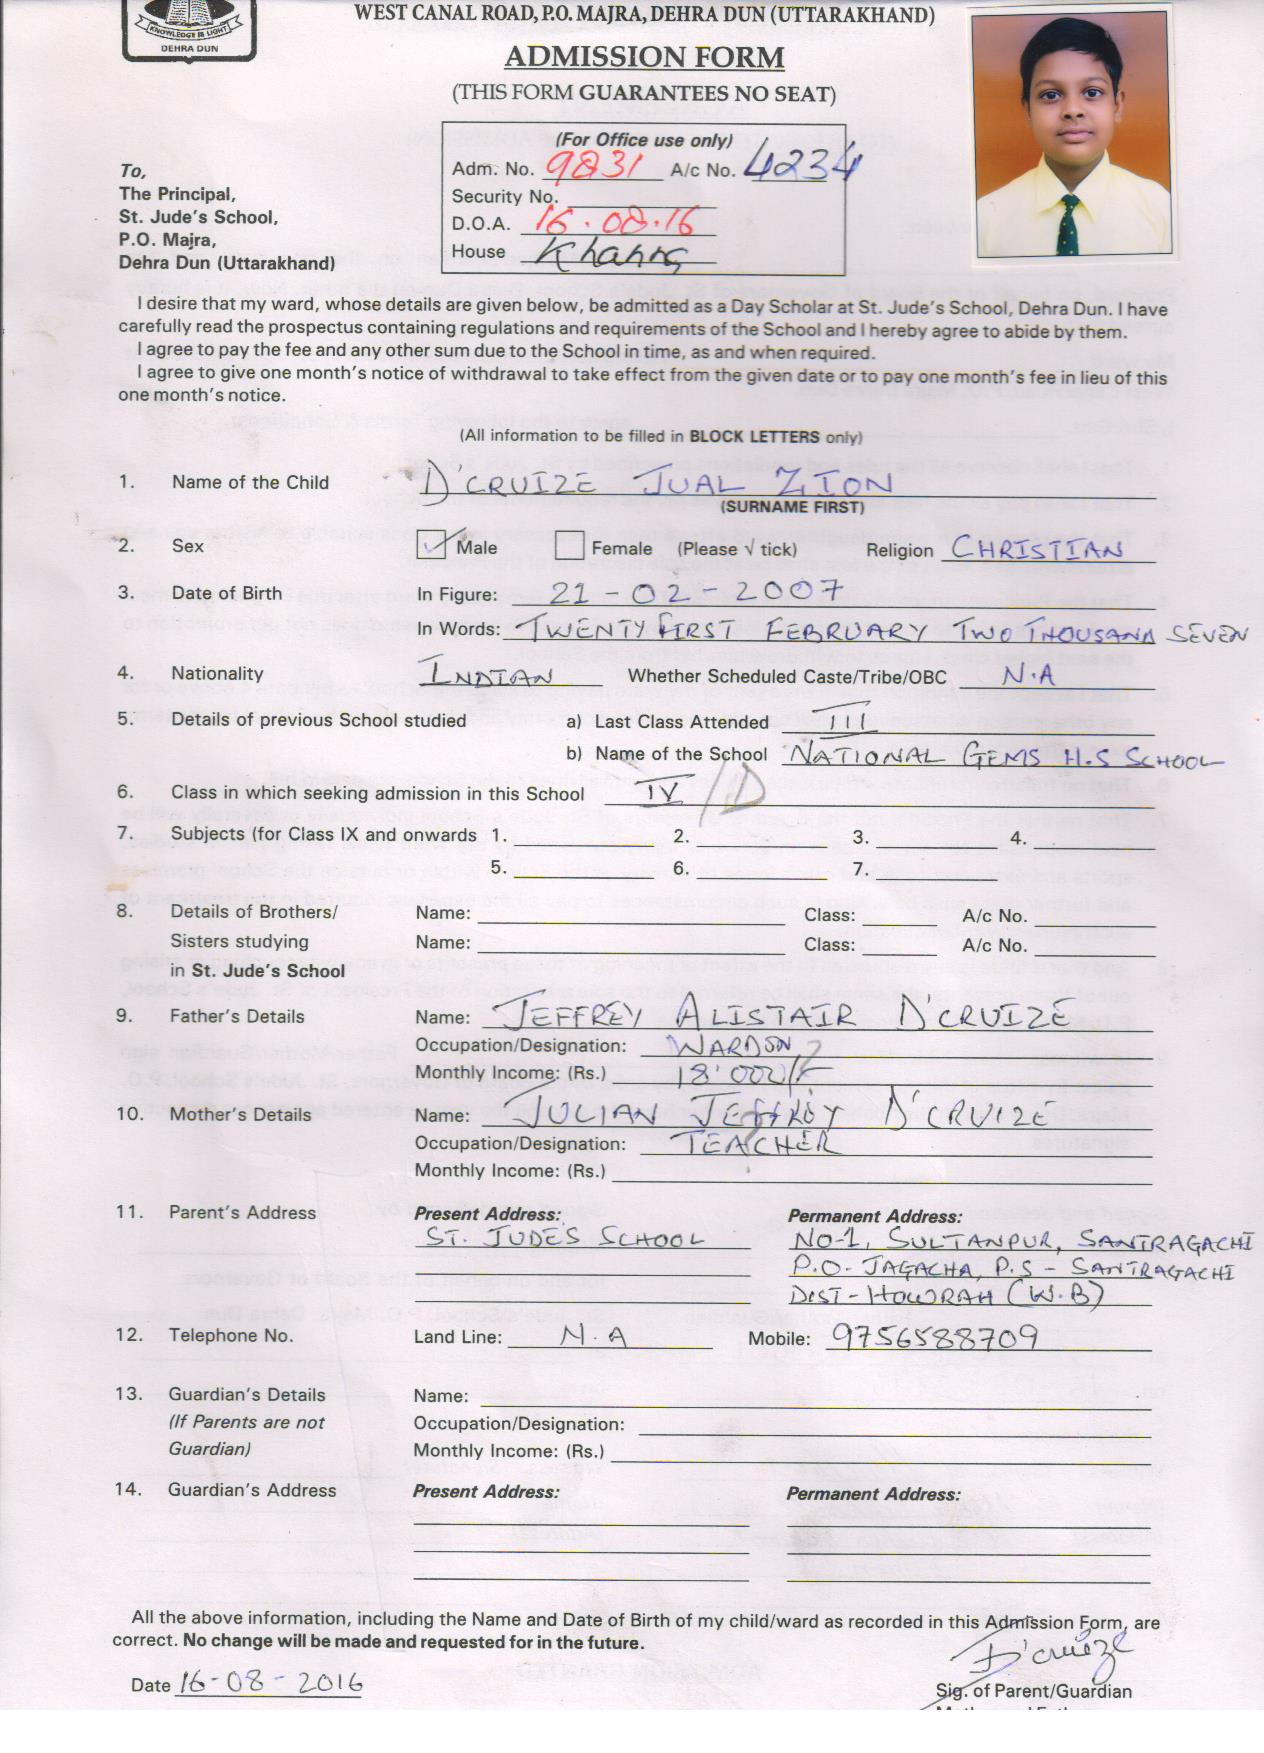 KNOWLEDGE IS LIGHT
DEHRA DUN
WEST CANAL ROAD, P.O. MAJRA, DEHRA DUN (UTTARAKHAND)
ADMISSION FORM
(THIS FORM GUARANTEES NO SEAT)
(For Office use only)
Adm. No. 9831 A/c No. 4234
Security No.
D.O.A. 16.08.16
House
To,
The Principal,
St. Jude's School,
P.O. Majra,
Dehra Dun (Uttarakhand)
I desire that my ward, whose details are given below, be admitted as a Day Scholar at St. Jude's School, Dehra Dun. I have
carefully read the prospectus containing regulations and requirements of the School and I hereby agree to abide by them.
I agree to pay the fee and any other sum due to the School in time, as and when required.
I agree to give one month's notice of withdrawal to take effect from the given date or to pay one month's fee in lieu of this
one month's notice.
(All information to be filled in BLOCK LETTERS only)
1. Name of the Child D'CRUIZE JUAL ZION
(SURNAME FIRST)
2. Sex ✓ Male Female (Please √ tick) Religion CHRISTIAN
3. Date of Birth In Figure: 21-02-2007
In Words: TWENTY FIRST FEBRUARY TWO THOUSAND SEVEN
4. Nationality INDIAN Whether Scheduled Caste/Tribe/OBC N.A
5. Details of previous School studied a) Last Class Attended III
b) Name of the School NATIONAL GEMS H.S SCHOOL
6. Class in which seeking admission in this School IV/D
7. Subjects (for Class IX and onwards 1. 2. 3. 4.
5. 6. 7.
8. Details of Brothers/ Name: Class: A/c No.
Sisters studying Name: Class: A/c No.
in St. Jude's School
9. Father's Details Name: JEFFREY ALISTAIR D'CRUIZE
Occupation/Designation: WARDON
Monthly Income: (Rs.) 18'000/-
10. Mother's Details Name: JULIAN JEFFROY D'CRUIZE
Occupation/Designation: TEACHER
Monthly Income: (Rs.)
11. Parent's Address Present Address: Permanent Address:
ST. JUDES SCHOOL NO-1, SULTANPUR, SANTRAGACHI
P.O- JAGACHA, P.S - SANTRAGACHI
DIST-HOWRAH (W.B)
12. Telephone No. Land Line: N.A Mobile: 9756588709
13. Guardian's Details Name:
(If Parents are not Occupation/Designation:
Guardian) Monthly Income: (Rs.)
14. Guardian's Address Present Address: Permanent Address:
All the above information, including the Name and Date of Birth of my child/ward as recorded in this Admission Form, are
correct. No change will be made and requested for in the future.
D'cruize
Date 16-08-2016
Sig. of Parent/Guardian